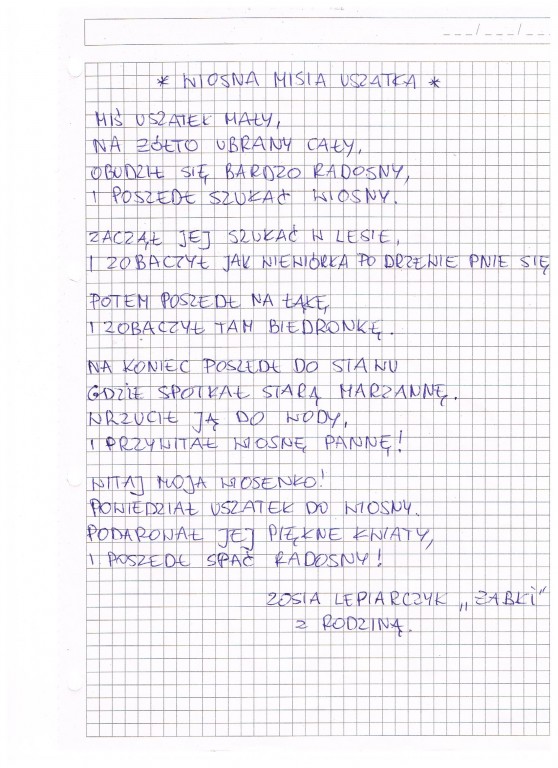 * WIOSNA MISIA USZATKA *
MIŚ USZATEK MAŁY,
NA ŻÓŁTO UBRANY CAŁY,
OBUDZIŁ SIĘ BARDZO RADOSNY,
I POSZEDŁ SZUKAĆ WIOSNY.
ZACZĄŁ JEJ SZUKAĆ W LESIE,
I ZOBACZYŁ JAK WIEWIÓRKA PO DRZEWIE PNIE SIĘ
POTEM POSZEDŁ NA ŁĄKĘ,
I ZOBACZYŁ TAM BIEDRONKĘ.
NA KONIEC POSZEDŁ DO STAWU
GDZIE SPOTKAŁ STARĄ MARZANNĘ.
WRZUCIŁ JĄ DO WODY,
I PRZYWITAŁ WIOSNĘ PANNĘ!
WITAJ MOJA WIOSENKO!
POWIEDZIAŁ USZATEK DO WIOSNY.
PODAROWAŁ JEJ PIĘKNE KWIATY,
I POSZEDŁ SPAĆ RADOSNY!
ZOSIA LEPIARCZYK „ŻABKI"
Z RODZINĄ.